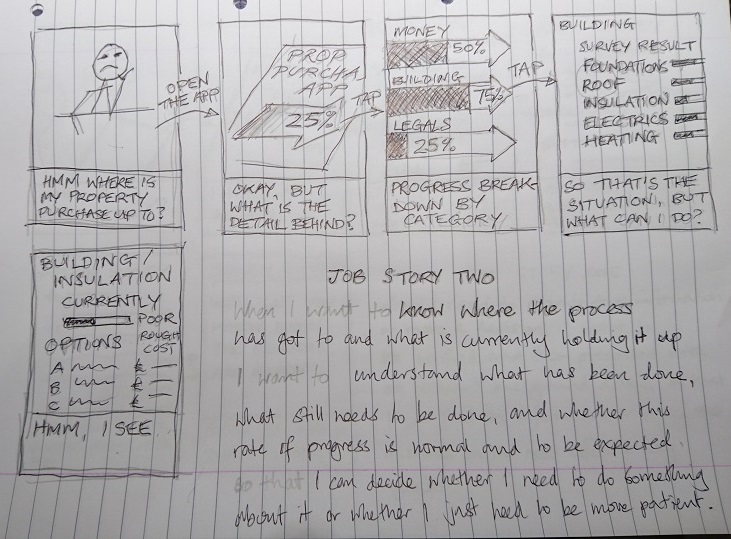 OPEN
THE APP
HMM WHERE IS
MY PROPERTY
PURCHASE UP TO?
PROP
PURCHA
APP
25%
TAP
OKAY, BUT
WHAT IS THE
DETAIL BEHIND?
MONEY
50%
BUILDING
75%
LEGALS
25%
TAP
PROGRESS BREAK-
DOWN BY
CATEGORY
BUILDING
SURVEY RESULT
FOUNDATIONS
ROOF
INSULATION
ELECTRICS
HEATING
SO THAT'S THE
SITUATION, BUT
WHAT CAN I DO?
BUILDING /
INSULATION
CURRENTLY
POOR
OPTIONS ROUGH
COST
A £
B £
C £
HMM, I SEE
JOB STORY TWO
When I want to know where the process
has got to and what is currently holding it up
I want to understand what has been done,
what still needs to be done, and whether this
rate of progress is normal and to be expected.
so that I can decide whether I need to do something
about it or whether I just need to be more patient.